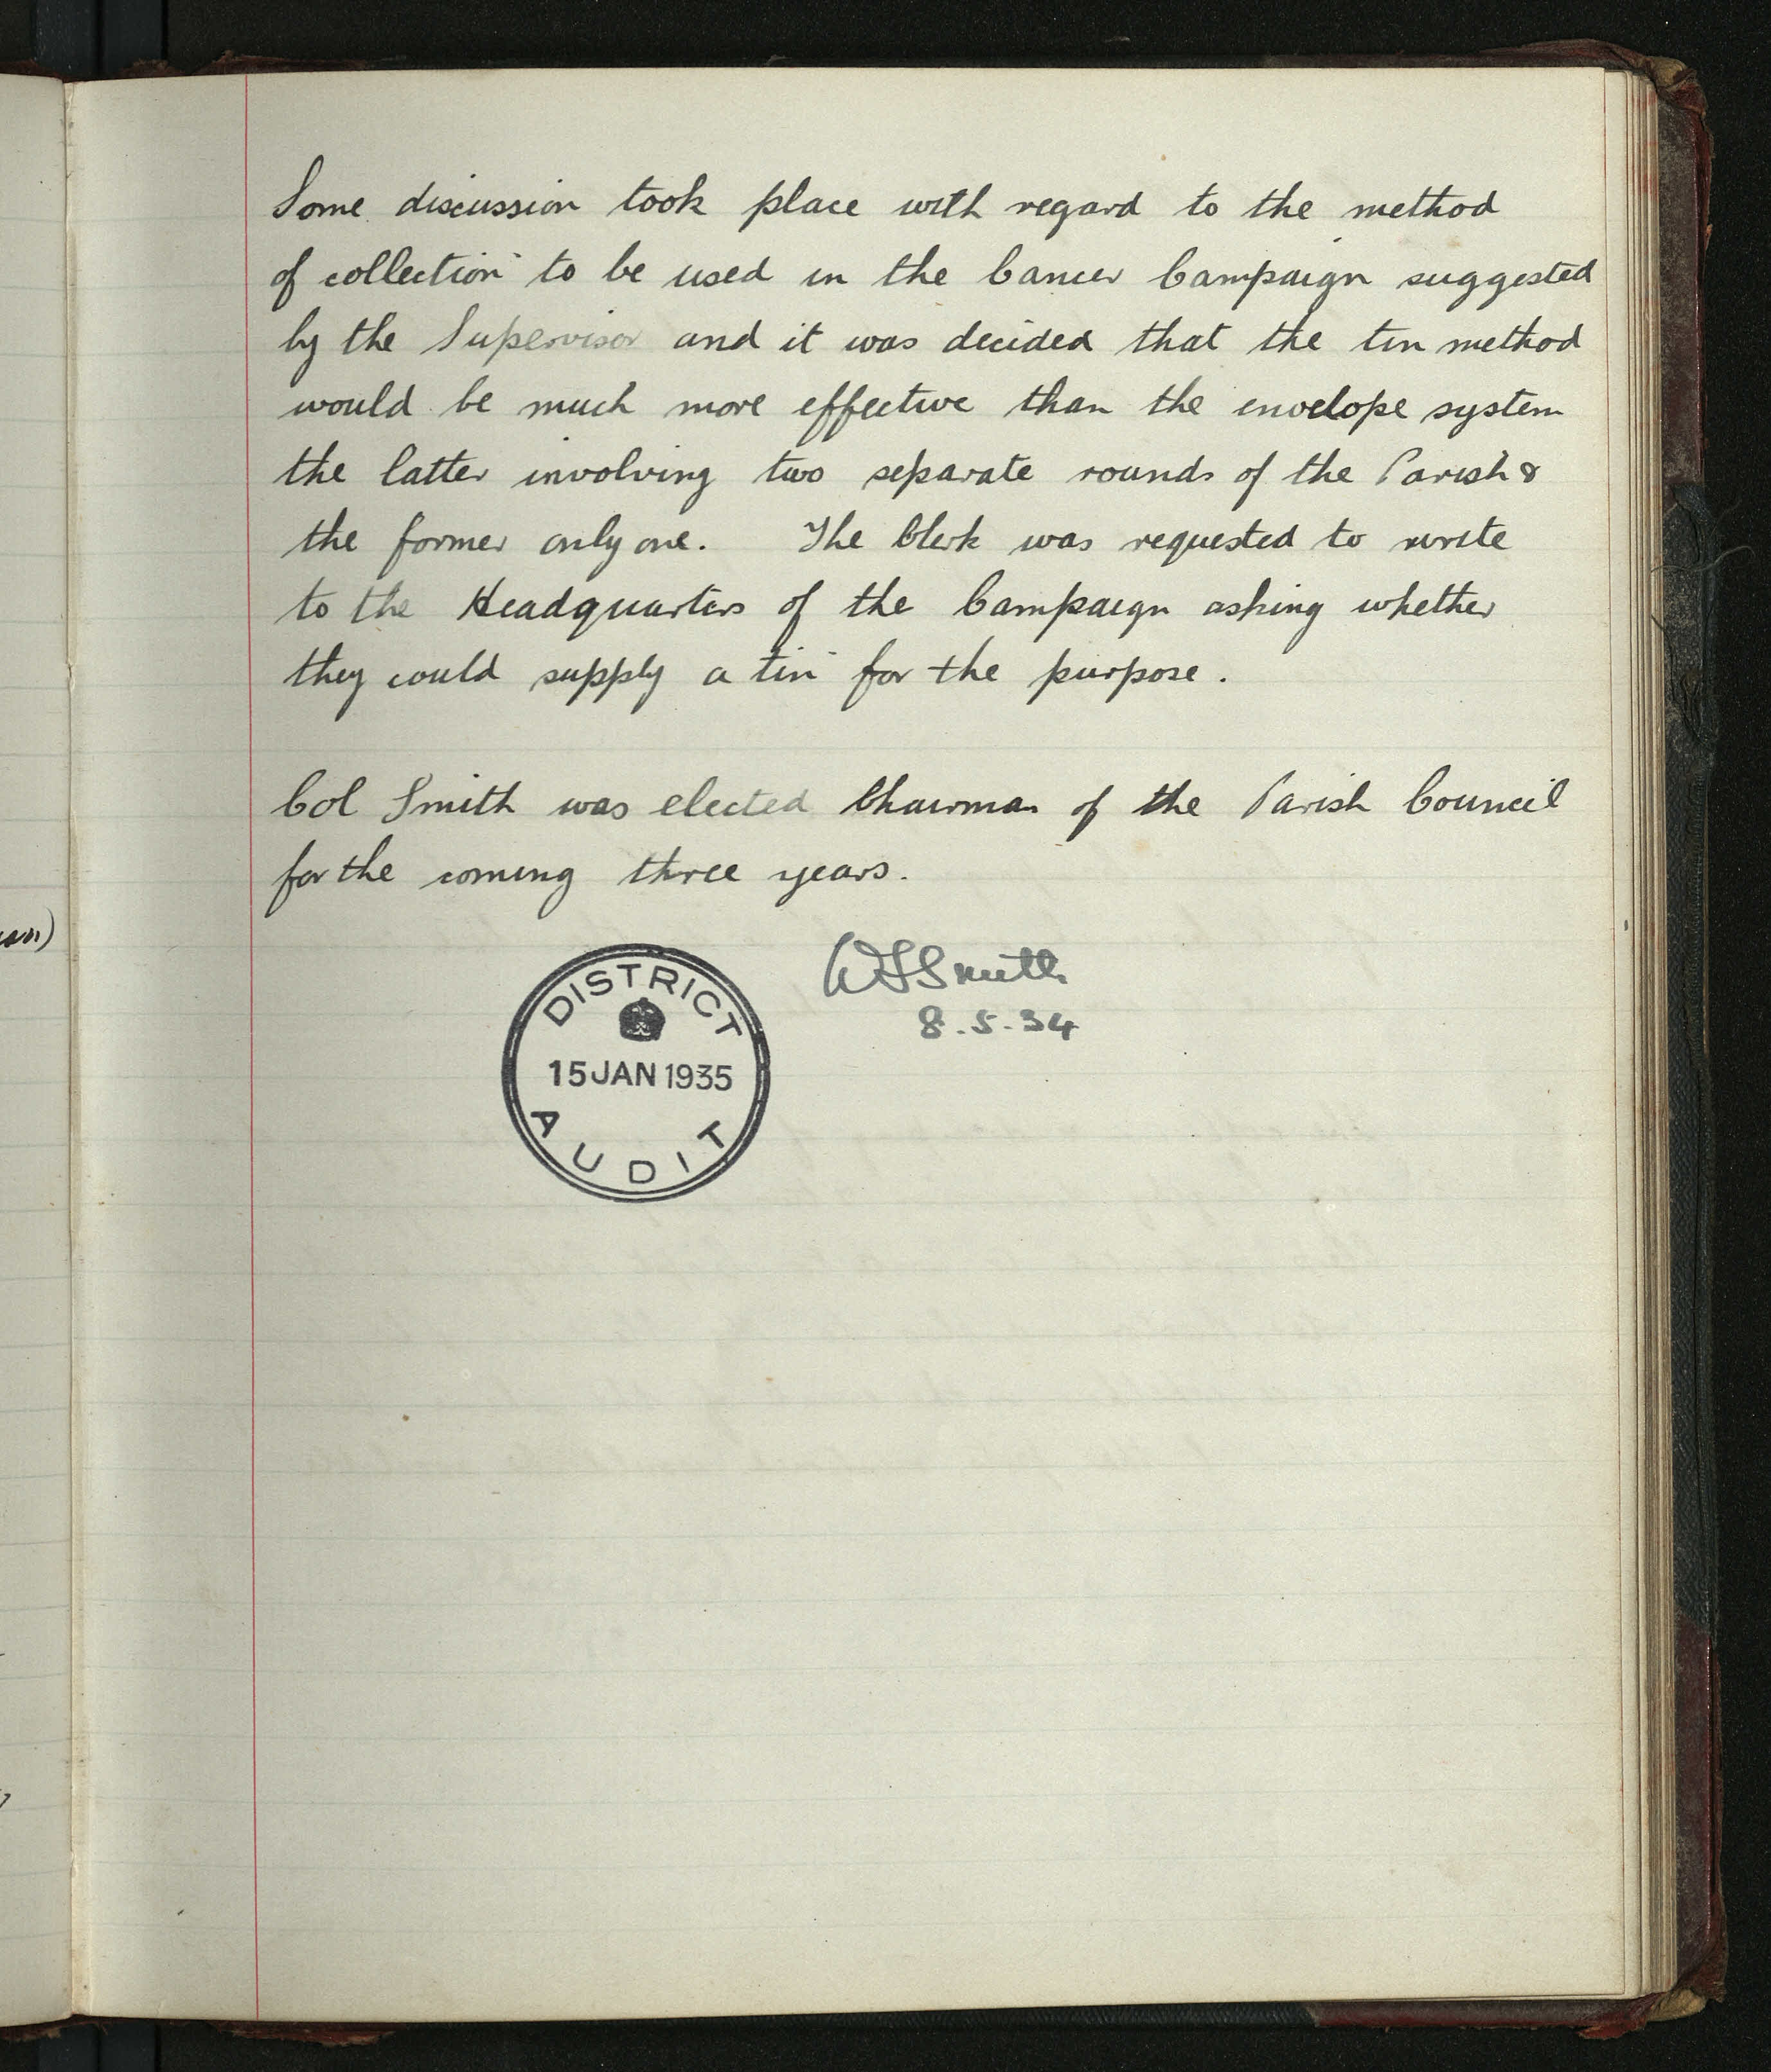 Some discussion took place with regard to the method
of collection to be used in the Cancer Campaign suggested
by the Supervisor and it was decided that the tin method
would be much more effective than the envelope system
the latter involving two separate rounds of the Parish &
the former only one. The Clerk was requested to write
to the Headquarters of the Campaign asking whether
they could supply a tin for the purpose.
Col Smith was elected Chairman of the Parish Council
for the coming three years.
WSSmith
8.5.34
DISTRICT
15 JAN 1935
AUDIT